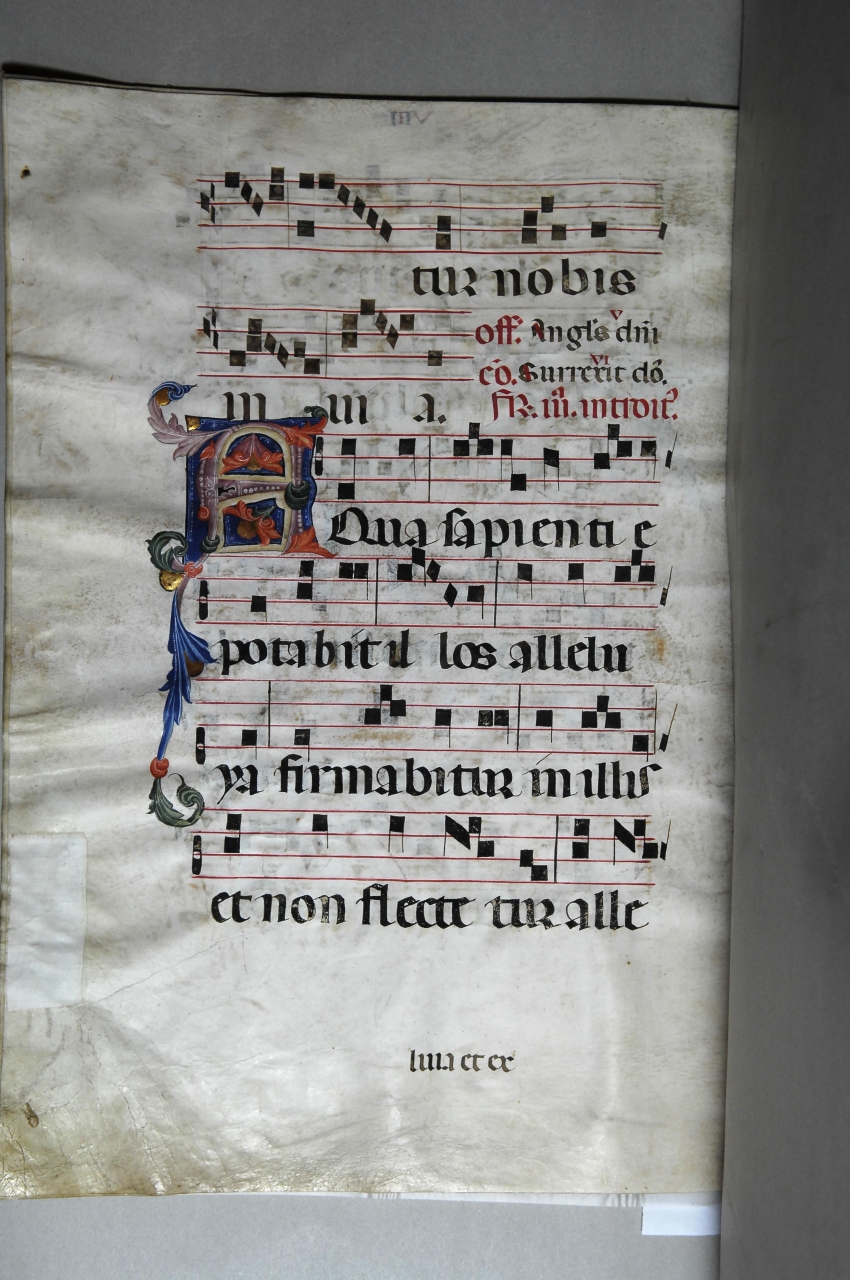 VIII
tur nobis
off. Angl's dn̄i
cō. Surrexit dō.
m m a. FR. iii. introit.
AQua sapienti e
potabit il los allelu
ya firmabitur in illis
et non flecte tur alle
luia et ex